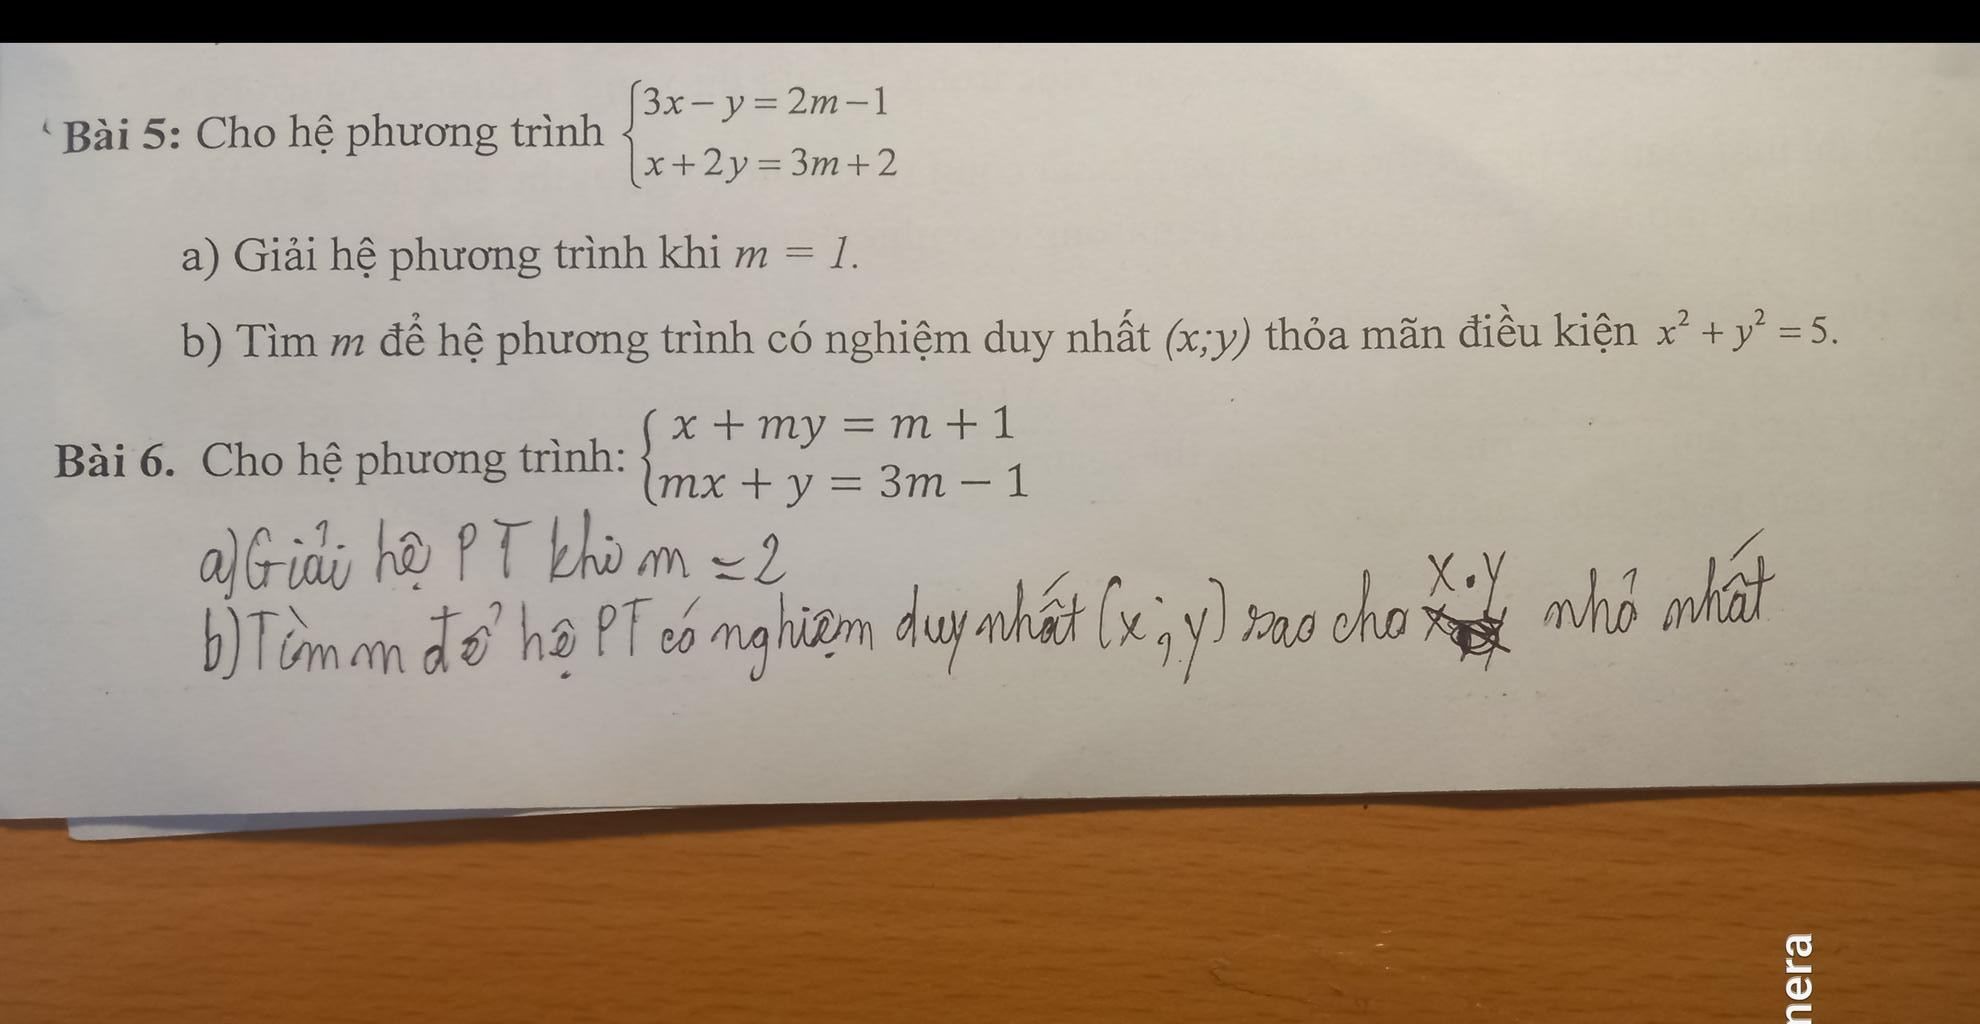 Bài 5: Cho hệ phương trình { 3x − y = 2m − 1
x + 2y = 3m + 2
a) Giải hệ phương trình khi m = 1.
b) Tìm m để hệ phương trình có nghiệm duy nhất (x;y) thỏa mãn điều kiện x² + y² = 5.
Bài 6. Cho hệ phương trình: { x + my = m + 1
mx + y = 3m − 1
a) Giải hệ PT khi m = 2
b) Tìm m để hệ PT có nghiệm duy nhất (x;y) sao cho x.y nhỏ nhất
mera